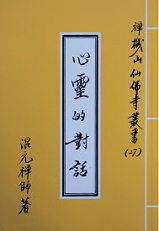 禪機山仙佛寺叢書
(27)
心靈的對話
混元禪師著